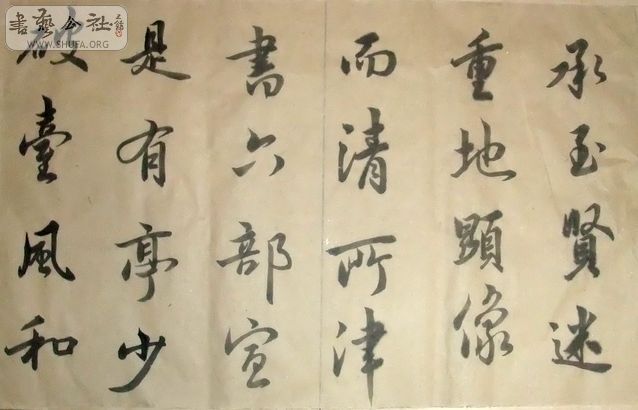 承玉賢迷
重地顯像
而清所津
書六部宣
是有亭少
破臺風和
書藝公社
WWW.SHUFA.ORG